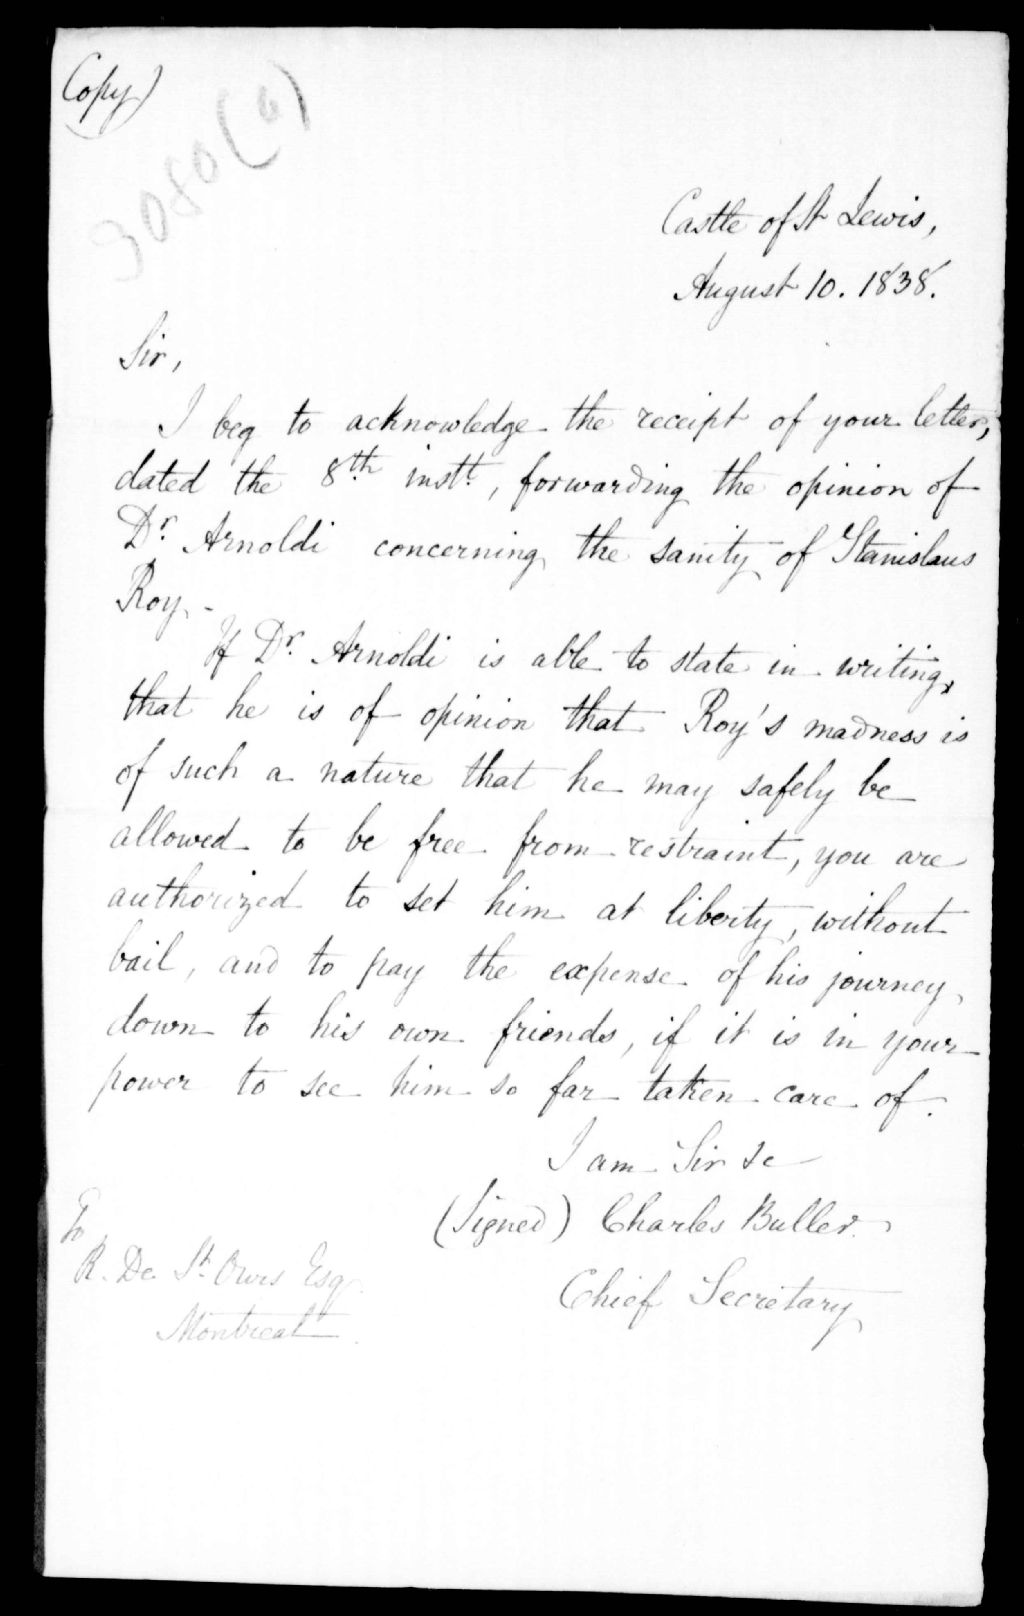 (Copy)
3080(6)
Castle of St Lewis,
August 10. 1838.
Sir,
I beg to acknowledge the receipt of your letter,
dated the 8th instt., forwarding the opinion of
Dr. Arnoldi concerning the sanity of Stanislaus
Roy.-
If Dr. Arnoldi is able to state in writing,
that he is of opinion that Roy's madness is
of such a nature that he may safely be
allowed to be free from restraint, you are
authorized to set him at liberty, without
bail, and to pay the expense of his journey,
down to his own friends, if it is in your
power to see him so far taken care of.
I am Sir &c
(Signed) Charles Buller.
Chief Secretary
To
R. De St. Ours Esqr.
Montreal